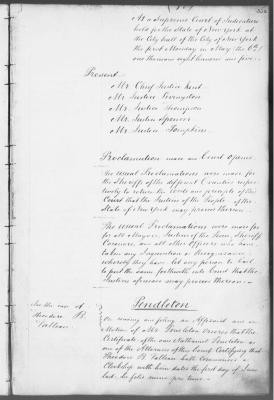 At a Supreme Court of Judicature
held for the State of New York at
the City Hall of the City of New York
the first Monday in May the 6th
one thousand eight hundred and five:
Present
Mr. Chief Justice Kent
Mr. Justice Livingston
Mr. Justice Thompson
Mr. Justice Spencer
Mr. Justice Tompkins.
Proclamation made and Court opened.
The usual Proclamations were made for
the Sheriffs of the different Counties
to return the writs and precepts of the
Court that the Justices of the People of the
State of New York may proceed thereon.
The usual Proclamations were made
for all Mayors, Justices of the Peace, Sheriffs
Coroners, and all other officers who have
taken any Inquisition or Recognizance
whereby they have let any person to bail
to put the same forthwith into Court that the
Justices may proceed thereon.
Pendleton
See the case of
Theodore B.
On reading and filing an Affidavit and on
Motion of Mr. Pendleton Ordered that the
Certificate of the said Nathaniel Pendleton
one of the Attornies of this Court Certifying that
Theodore B. hath commenced a
Clerkship with him dated the first day of June
last be filed